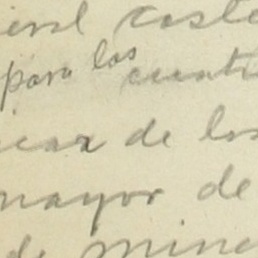 eral coste
para los cuatr
icar de los
mayor de
de mine